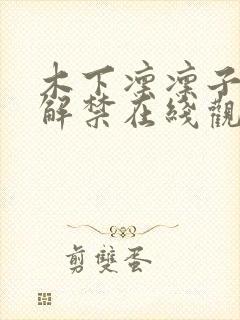 木下凜凜子
解禁在綫觀
剪雙蛋